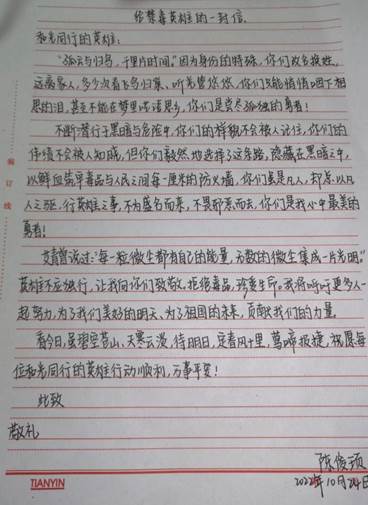 给禁毒英雄的一封信
和光同行的英雄:
"孤云与归鸟,千里片时间。"因为身份的特殊,你们改名换姓,
远离家人,多少次看飞鸟归巢,听羌管悠悠,你们只能悄悄咽下相
思的泪,甚至不能在梦里诺诺思乡,你们是尝尽孤独的勇者!
不断潜行于黑暗与危险中,你们的样貌不会被人记住,你们的
伟绩不会被人知晓,但你们毅然地选择了这条路,隐藏在黑暗之中,
以鲜血筑牢毒品与人民之间每一厘米的防火墙,你们虽是凡人,却总以凡
人之躯,行英雄之事,不为盛名而来,不畏邪恶而去,你们是我心中最美的
勇者!
艾青曾说过:"每一粒微尘都有自己的能量,无数的微尘集成一片光明。"
英雄不应独行,让我向你们致敬,拒绝毒品,珍爱生命,我将呼吁更多人一
起努力,为了我们美好的明天,为了祖国的未来,贡献我们的力量。
看今日,吴碧空苍山,天寒云淡,待明日,定春风十里,莺啼报捷,祝愿每
位和光同行的英雄行动顺利,万事平安!
此致
敬礼
陈俊颈
2022年10月24日
装订线
TIANYIN